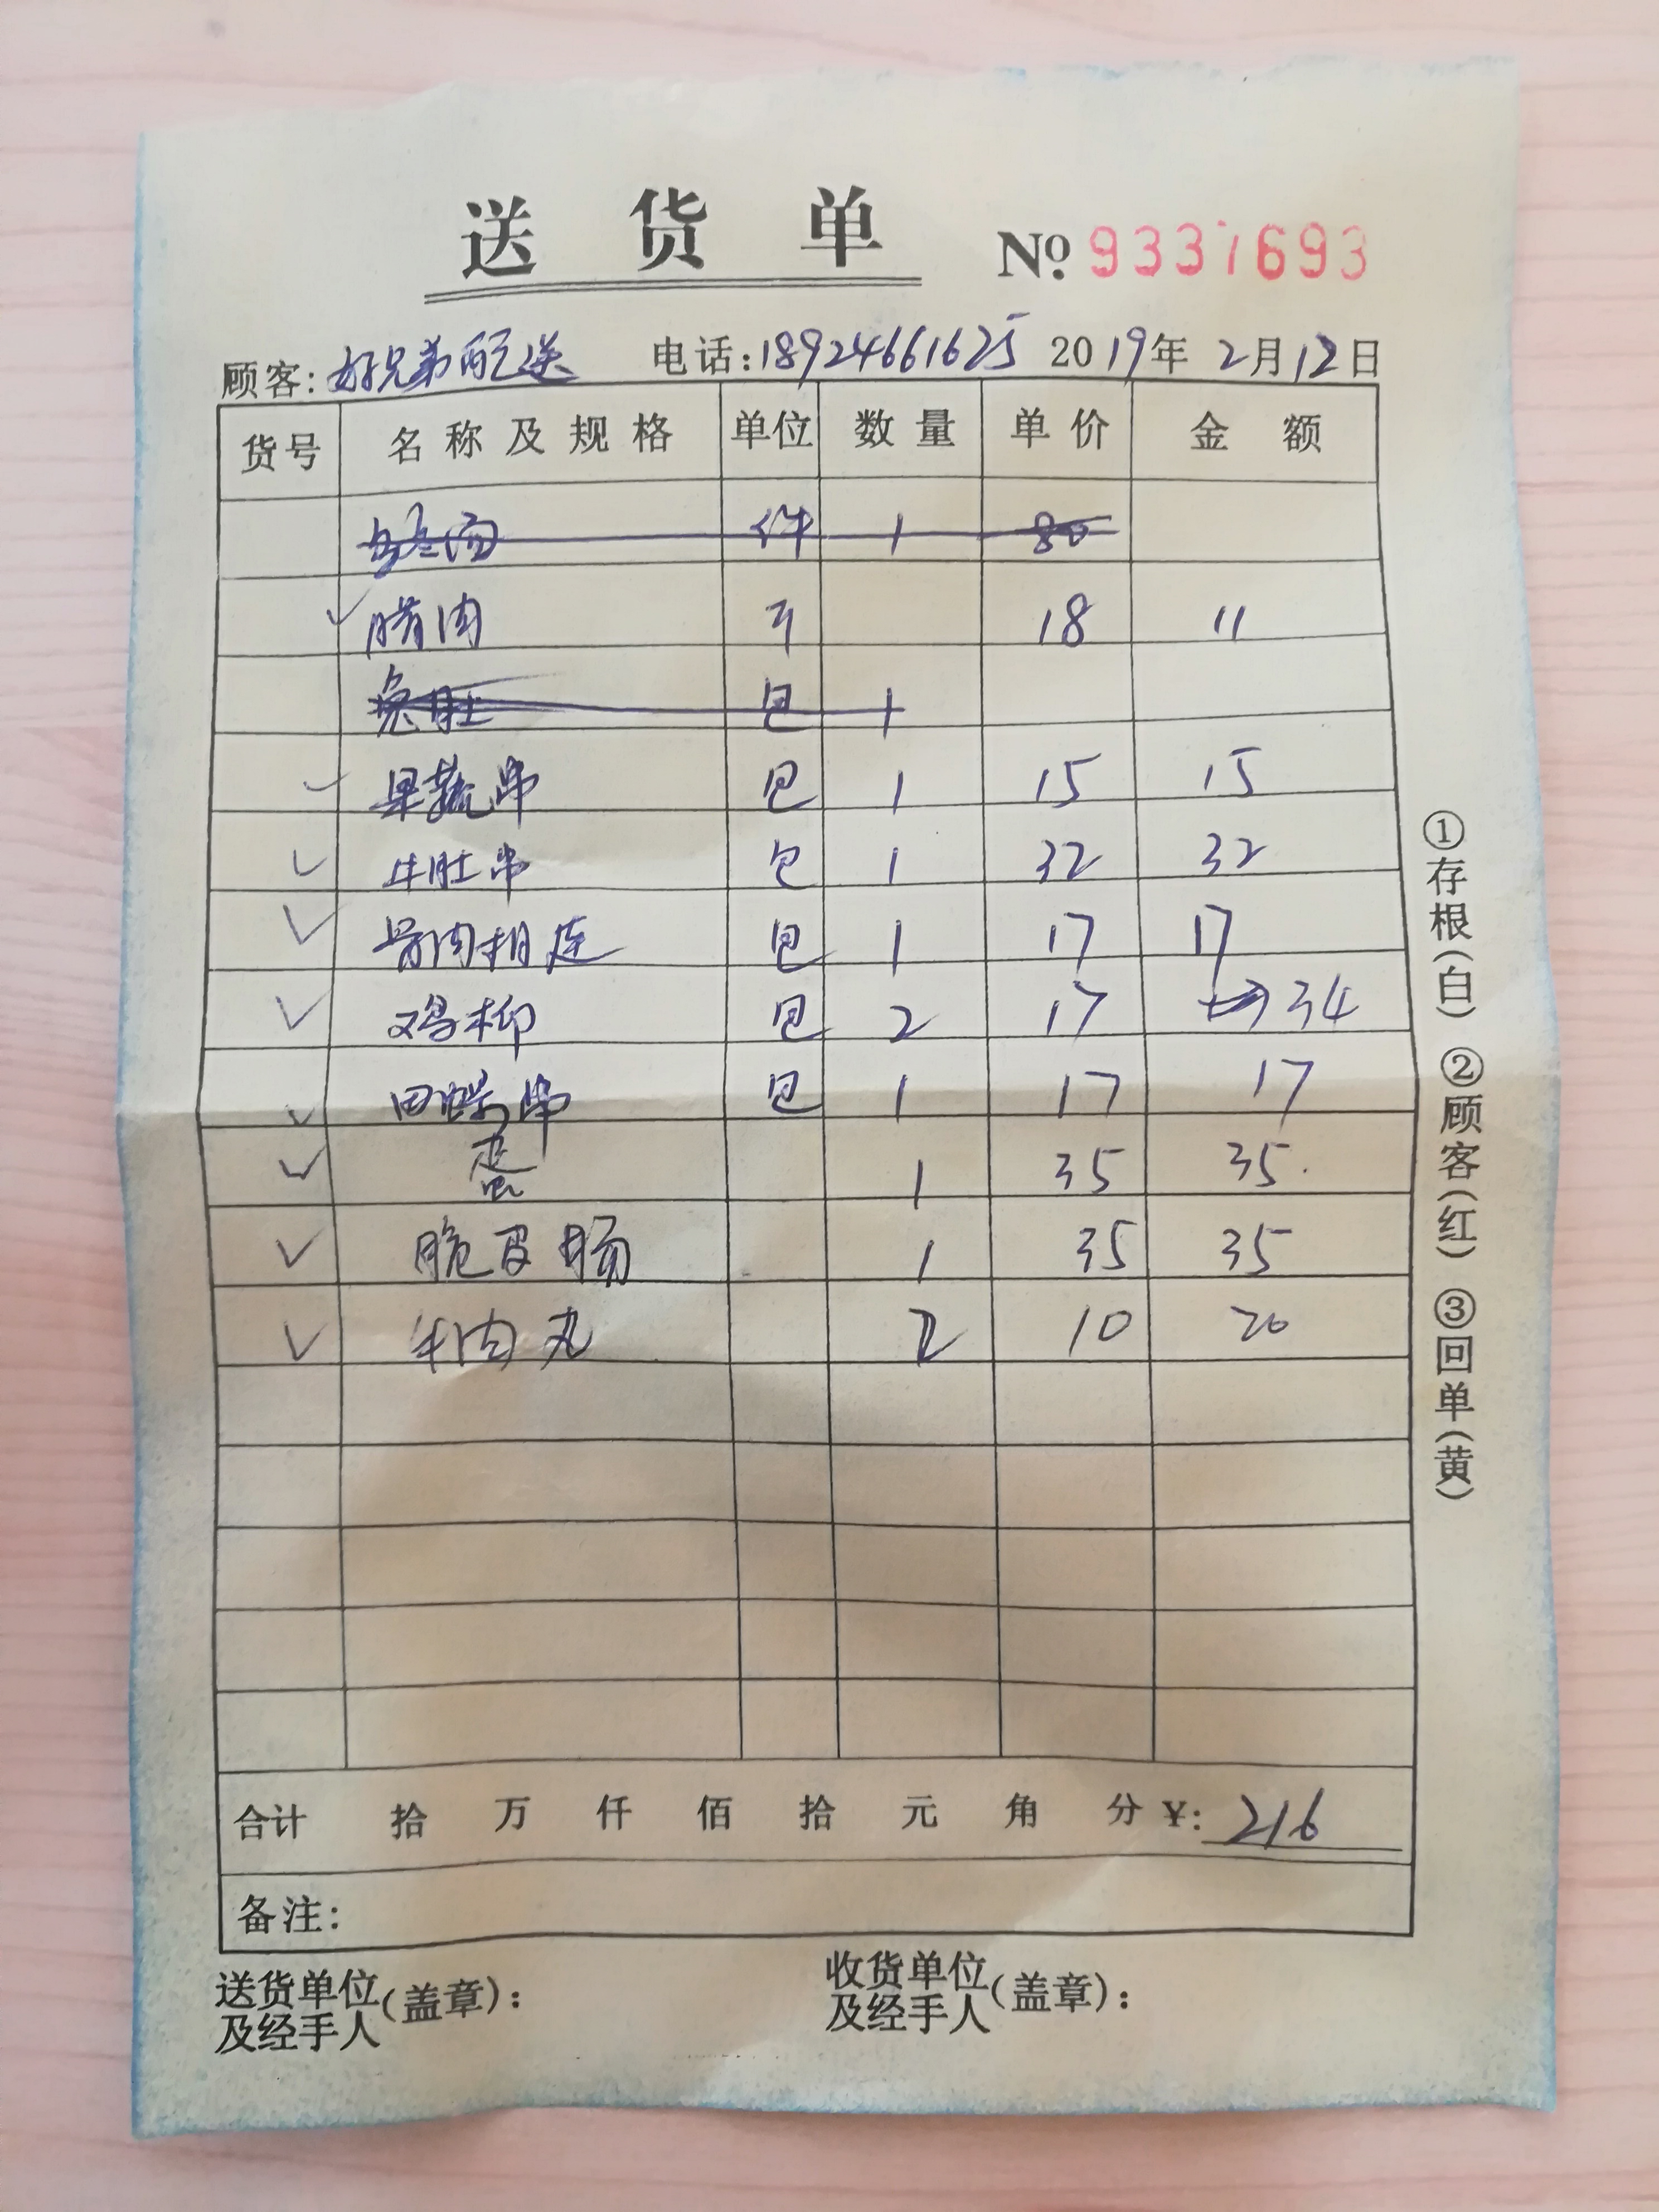 送货单 Nº 9337693
顾客: 好兄弟配送 电话:18924661625 2019年2月12日
货号 名称及规格 单位 数量 单价 金额
件 1 80
✓ 腊肉 斤 18 11
包 1
✓ 果蔬串 包 1 15 15
✓ 牛肚串 包 1 32 32
✓ 骨肉相连 包 1 17 17
✓ 鸡柳 包 2 17 34
✓ 田螺串 包 1 17 17
✓ 蛋 1 35 35
✓ 脆皮肠 1 35 35
✓ 牛肉丸 2 10 20
合计 拾 万 仟 佰 拾 元 角 分 ¥: 216
备注:
送货单位及经手人(盖章):
收货单位及经手人(盖章):
①存根(白) ②顾客(红) ③回单(黄)